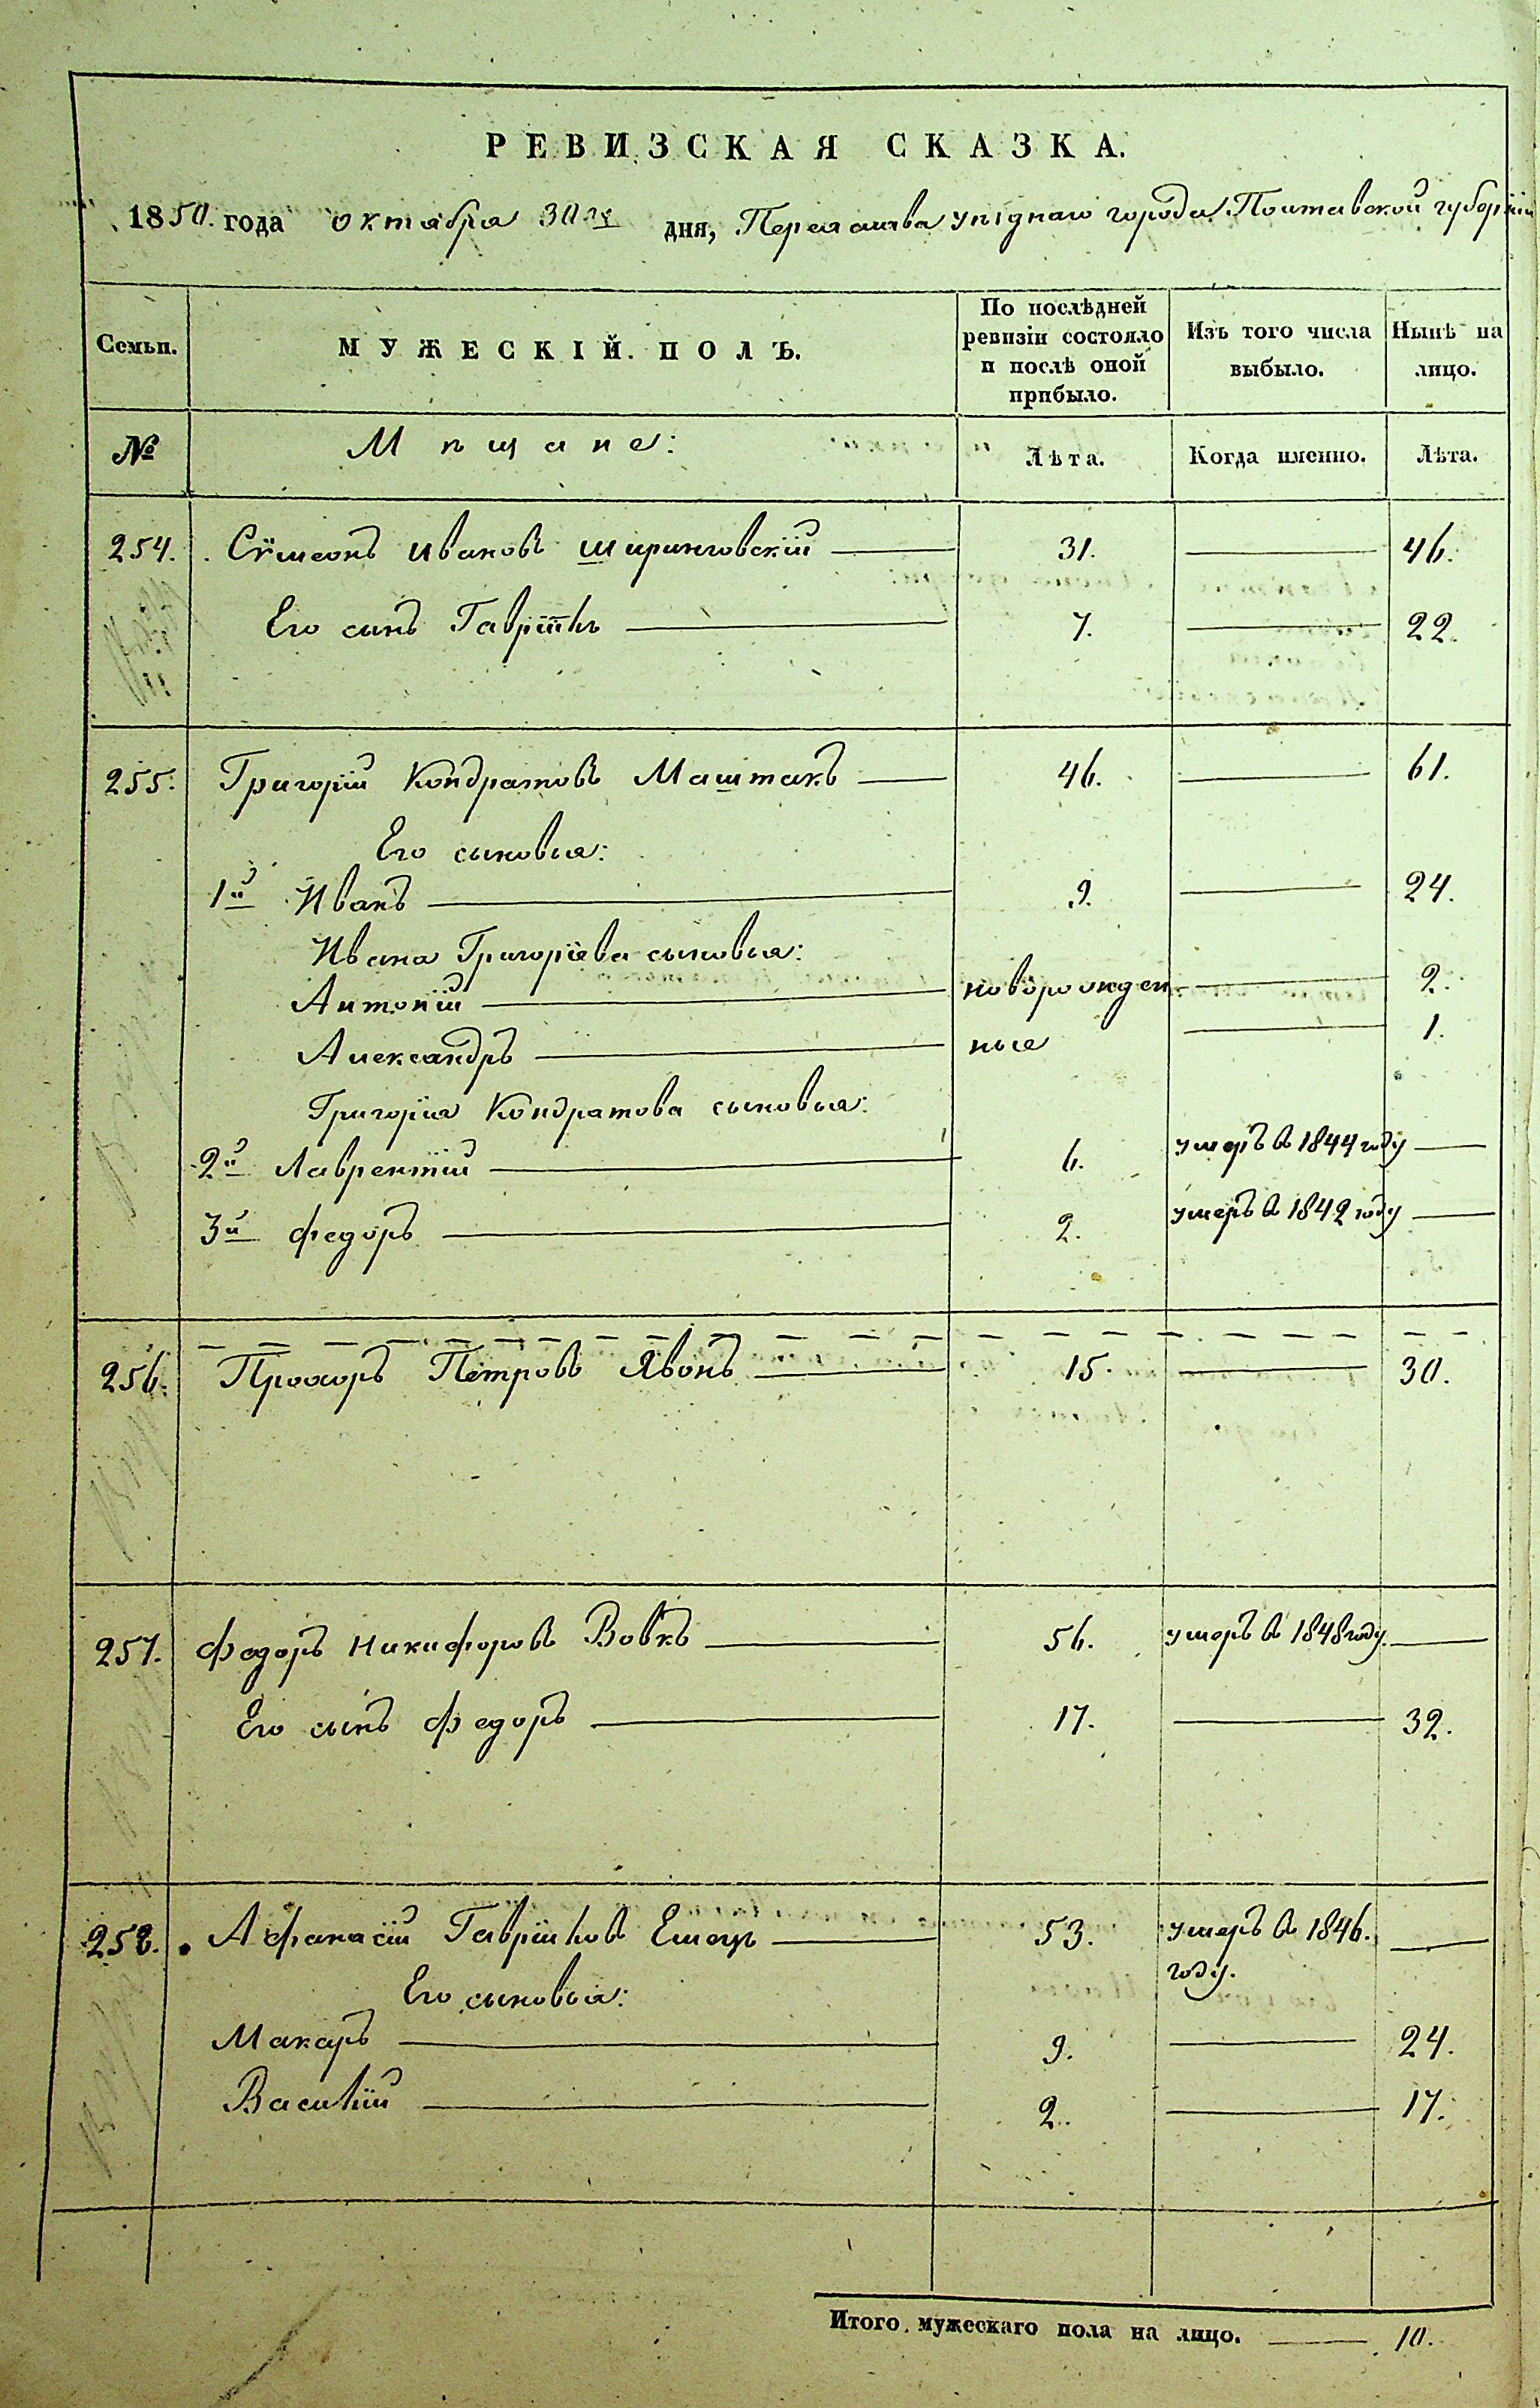 РЕВИЗСКАЯ СКАЗКА.
1850. года октября 30го дня, Переяслава уѣзднаго города Полтавской губерніи
Семьи. МУЖЕСКІЙ ПОЛЪ. По послѣдней ревизіи состояло и послѣ оной прибыло. Изъ того числа выбыло. Нынѣ на лицо.
№ Мѣщане: Лѣта. Когда именно. Лѣта.
254. Сѵмеонъ Ивановъ 31. 46.
Его сынъ Гавріилъ 7. 22.
255. Григорій Кондратовъ Маштакъ 46. 61.
Его сыновья:
1й Иванъ 9. 24.
Ивана Григоріева сыновья:
Антоній новорожден 2.
Александръ ные 1.
Григорія Кондратова сыновья:
2й Лаврентій 6. умеръ въ 1844 году
3й Федоръ 2. умеръ въ 1842 году
256. Прохоръ Петровъ Явонъ 15. 30.
257. Федоръ Никифоровъ Вовкъ 56. умеръ въ 1848 году.
Его сынъ Федоръ 17. 32.
258. Афанасій Гавріиловъ Емецъ 53. умеръ въ 1846.
году.
Его сыновья:
Макаръ 9. 24.
Василій 2. 17.
Итого мужескаго пола на лицо. 10.